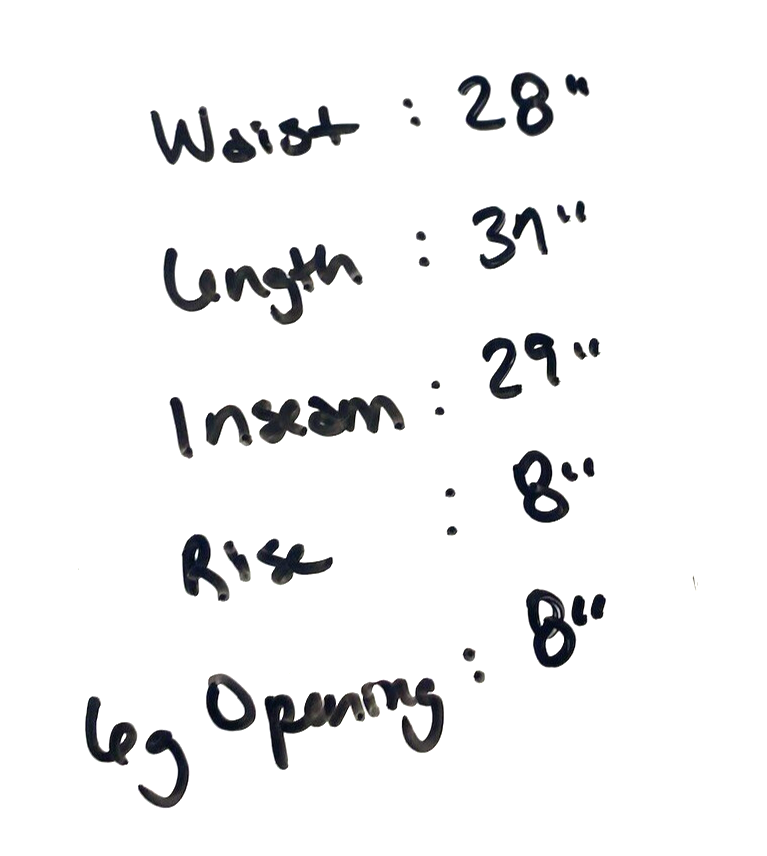 Waist : 28"
Length : 37"
Inseam : 29"
Rise : 8"
Leg Opening : 8"